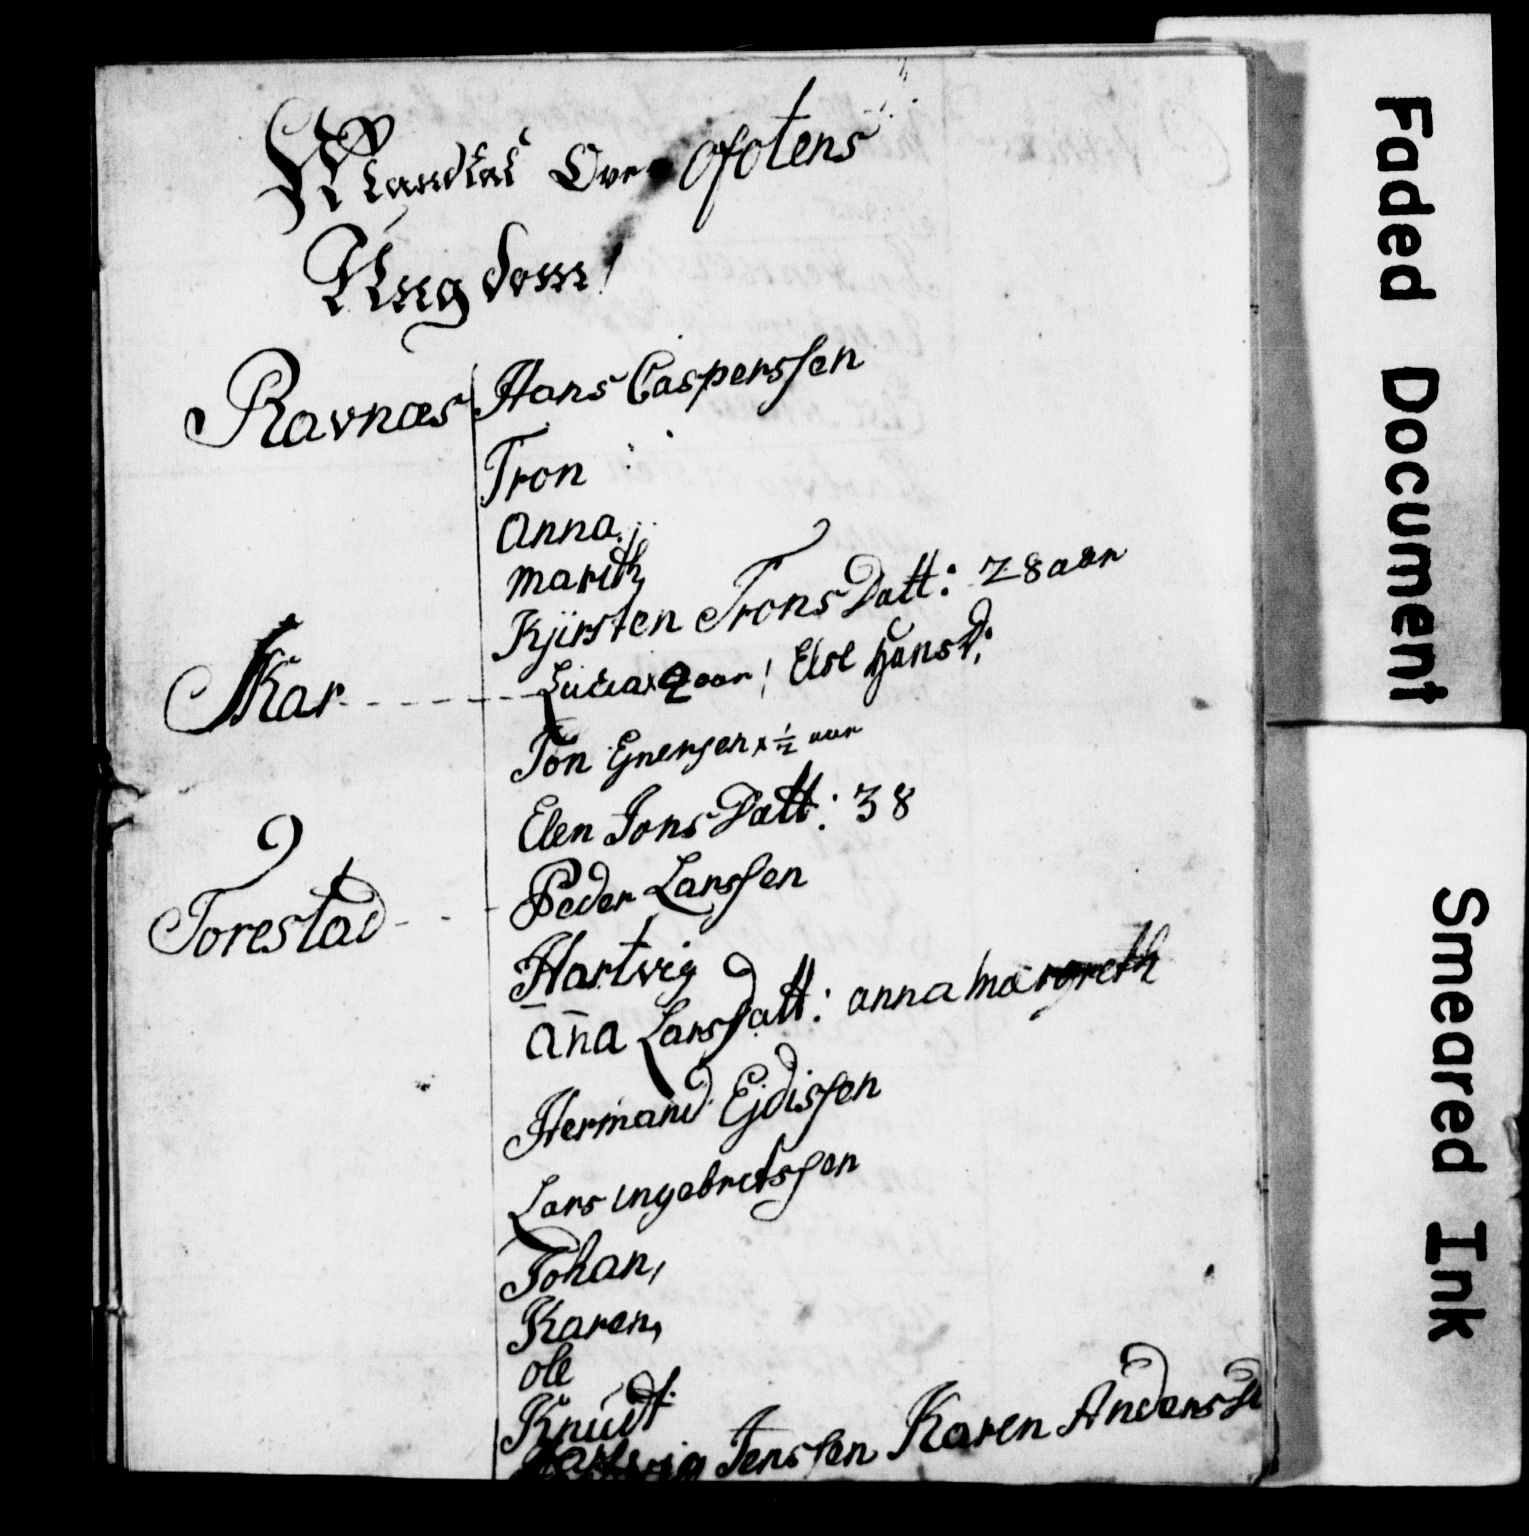 Mandtal Over Ofotens
Ungdom!
Ravnæs Hans Casperssen
Tron
Anna.
Marith
Kjirsten Trons Datt: 28 aar
Skar Lucia x 2 aar! Else Hans D:
Jon Enersen x ½ aar
Elen Jons Datt: 38
Torestad Peder Larssen
Hartvig
Ana Lars Datt: anna margreth
Hermand Ejdissen
Lars ingebretssen
Johan,
Karen,
ole
Knudt
Hartvig Jenssen Karen Anders
Faded Document
Smeared Ink